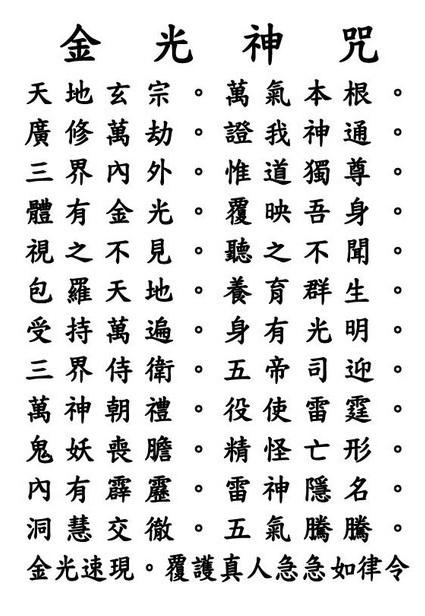 金光神咒
天地玄宗。萬氣本根。
廣修萬劫。證我神通。
三界內外。惟道獨尊。
體有金光。覆映吾身。
視之不見。聽之不聞。
包羅天地。養育群生。
受持萬遍。身有光明。
三界侍衛。五帝司迎。
萬神朝禮。役使雷霆。
鬼妖喪膽。精怪亡形。
內有霹靂。雷神隱名。
洞慧交徹。五氣騰騰。
金光速現。覆護真人急急如律令